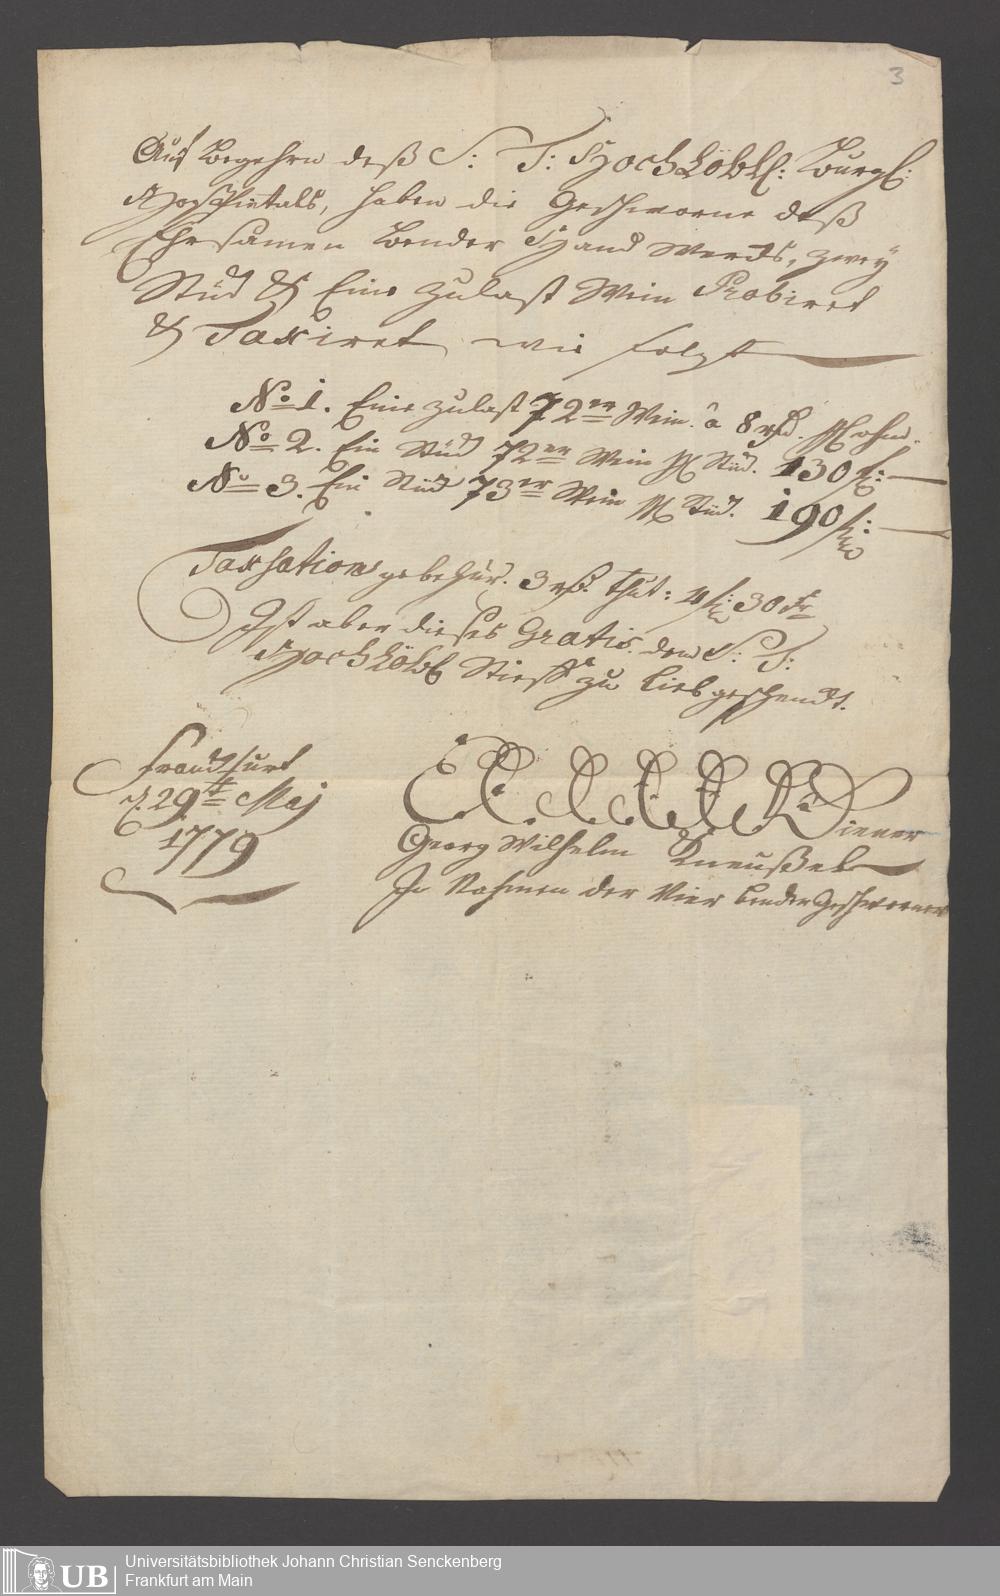 3
Auf Begehrn deß S: T: HochLöbl: Burgl:
Hospitals, haben die Geschworne deß
Ehrsamen Bender Handwercks, zwey
Stück & Eine Zulast Wein Probiret
& Taxiret wie folgt
No 1. Eine Zulast 72er Wein. â 8 rth. ohm.
No 2. Ein Stück 72er Wein Stück. 130 f:
No 3. Ein Stück 73er Wein Stück. 190 f:
Taxsations gebehür. 3 rth. thut: 4 f: 30 Kr
Ist aber dieses Gratis. dem S: T:
HochLöbl Stifft zu lieb geschenckt.
Franckfurt
d. 29t Maij
1779
Diener
Georg Wilhelm Kneußel
In Nahmen der Vier Bender Geschworner
UB
Universitätsbibliothek Johann Christian Senckenberg
Frankfurt am Main